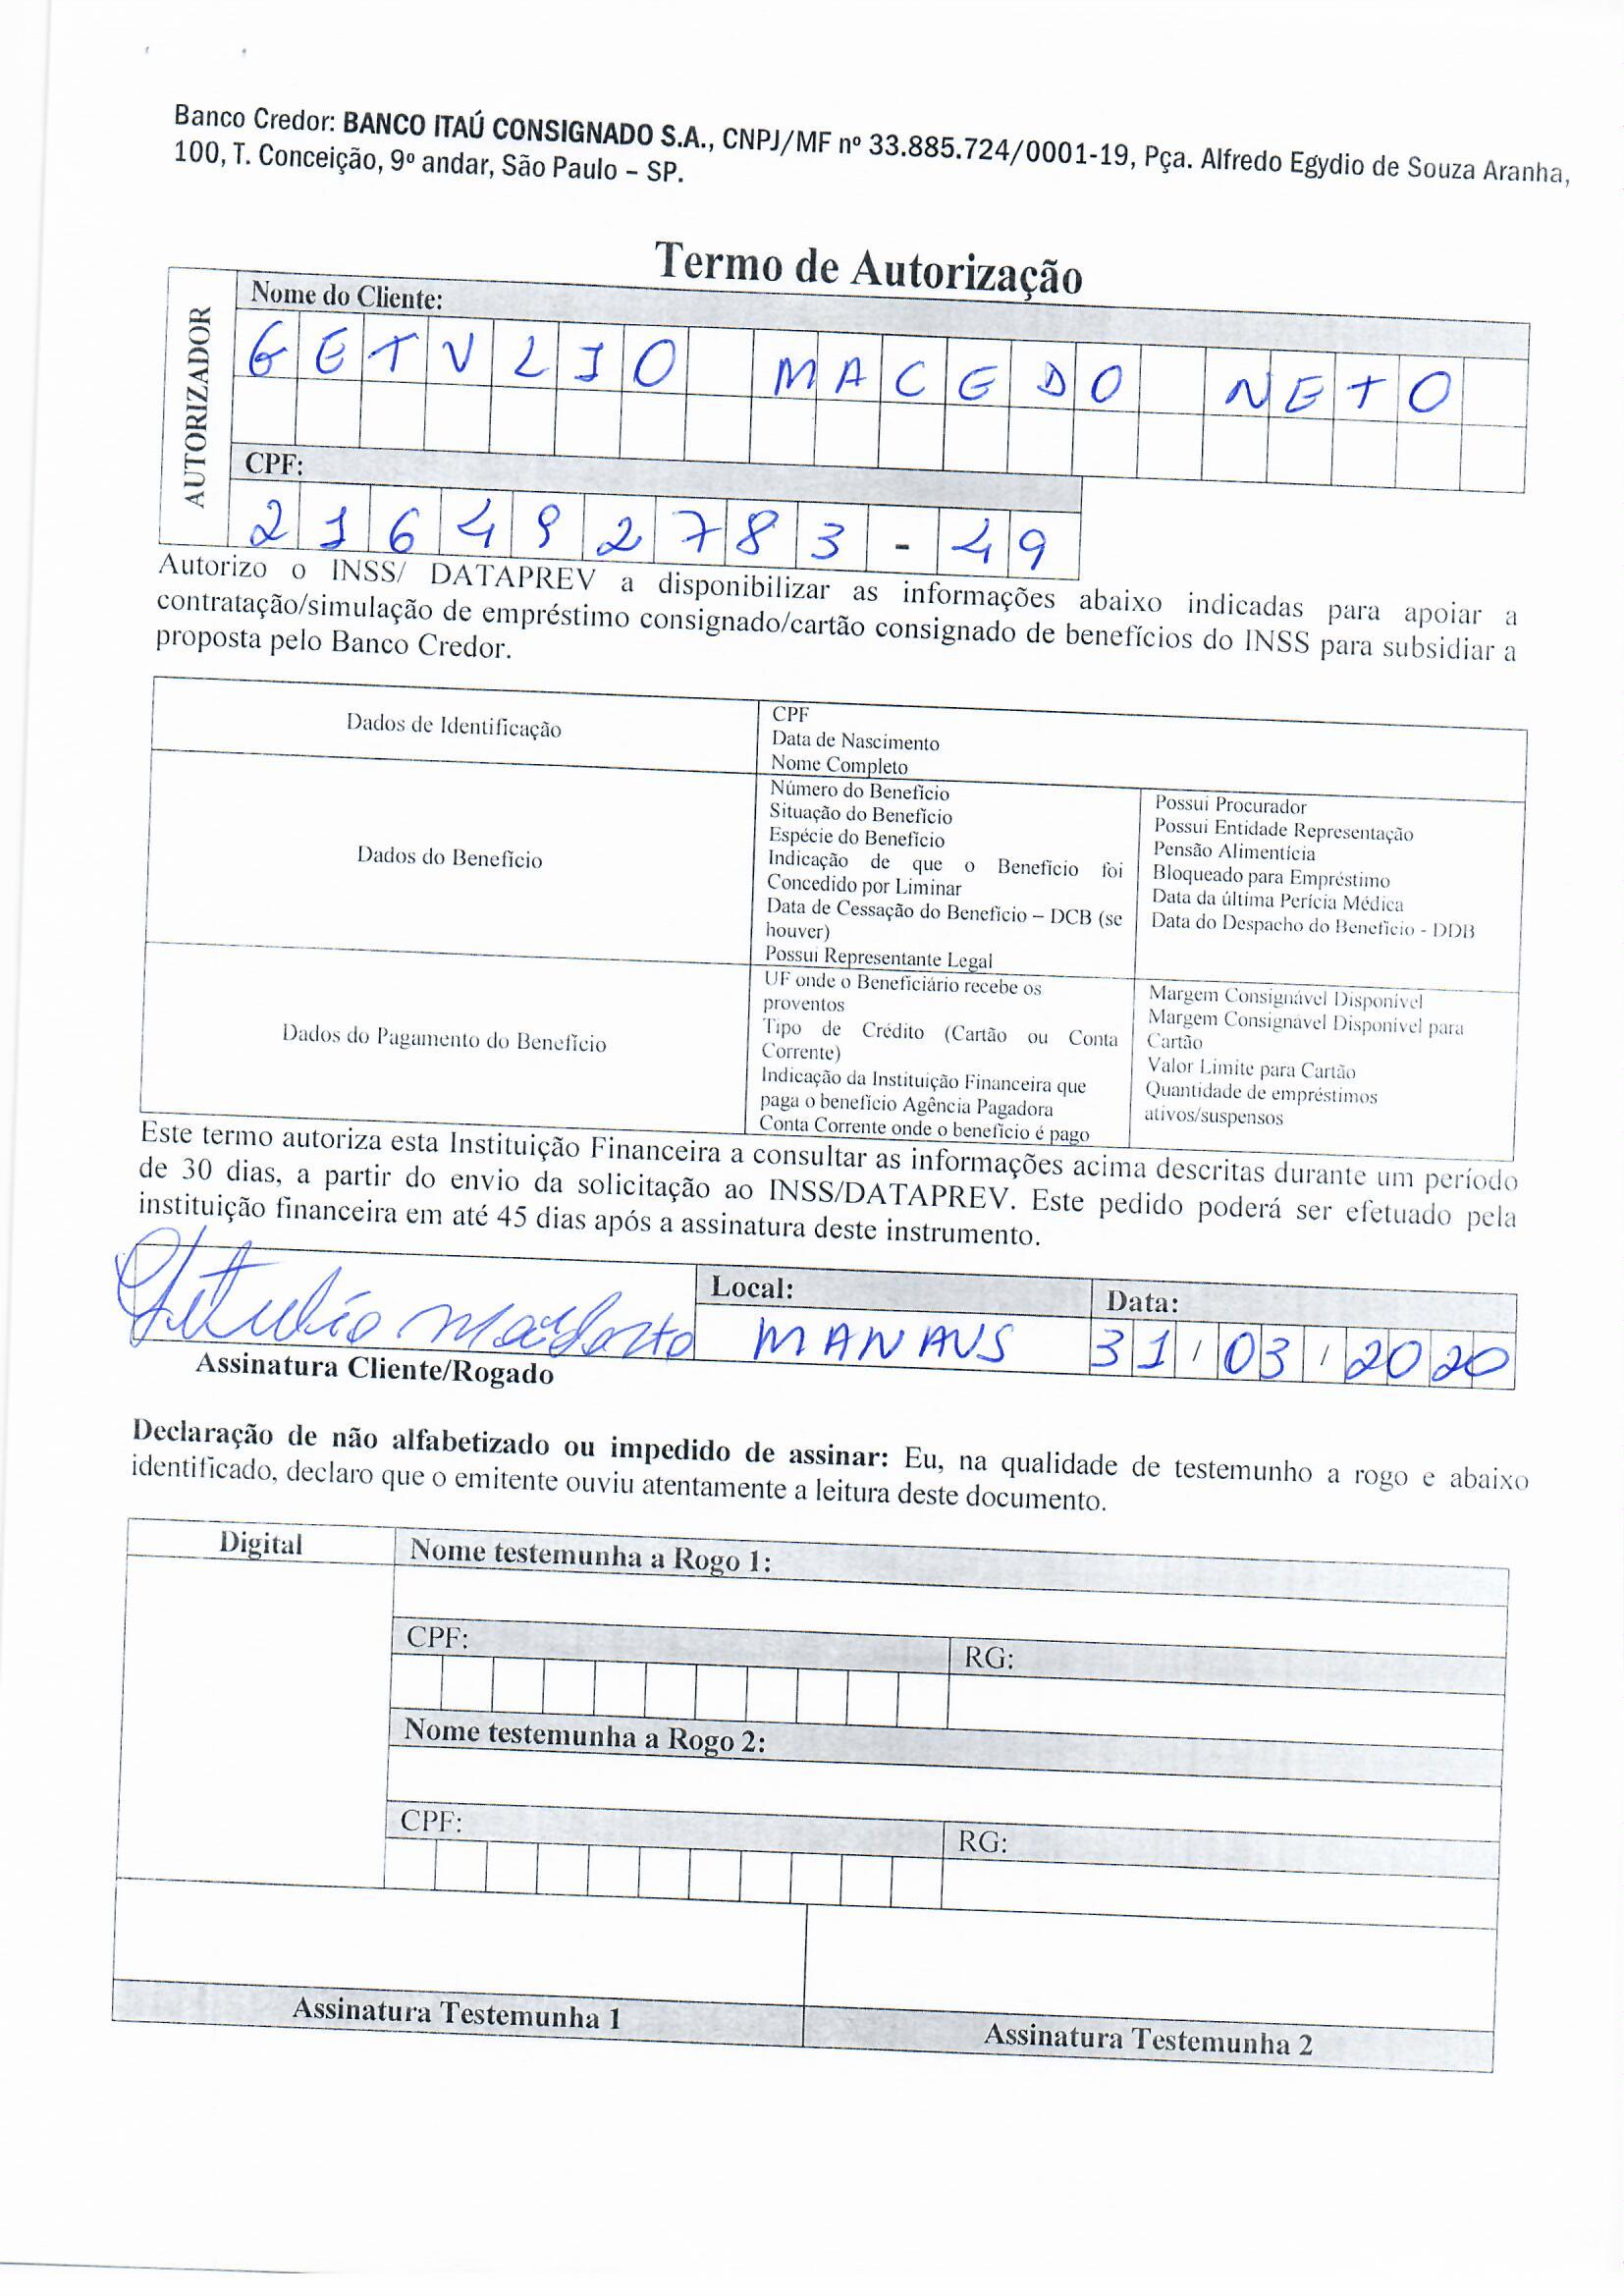 Banco Credor: BANCO ITAÚ CONSIGNADO S.A., CNPJ/MF nº 33.885.724/0001-19, Pça. Alfredo Egydio de Souza Aranha,
100, T. Conceição, 9º andar, São Paulo – SP.
Termo de Autorização
AUTORIZADOR
Nome do Cliente:
GETVLIO MACEDO NETO
CPF:
216492783-49
Autorizo o INSS/ DATAPREV a disponibilizar as informações abaixo indicadas para apoiar a
contratação/simulação de empréstimo consignado/cartão consignado de benefícios do INSS para subsidiar a
proposta pelo Banco Credor.
Dados de Identificação
CPF
Data de Nascimento
Nome Completo
Dados do Benefício
Número do Benefício
Situação do Benefício
Espécie do Benefício
Indicação de que o Benefício foi
Concedido por Liminar
Data de Cessação do Benefício – DCB (se
houver)
Possui Representante Legal
Possui Procurador
Possui Entidade Representação
Pensão Alimentícia
Bloqueado para Empréstimo
Data da última Perícia Médica
Data do Despacho do Benefício - DDB
Dados do Pagamento do Benefício
UF onde o Beneficiário recebe os
proventos
Tipo de Crédito (Cartão ou Conta
Corrente)
Indicação da Instituição Financeira que
paga o benefício Agência Pagadora
Conta Corrente onde o benefício é pago
Margem Consignável Disponível
Margem Consignável Disponível para
Cartão
Valor Limite para Cartão
Quantidade de empréstimos
ativos/suspensos
Este termo autoriza esta Instituição Financeira a consultar as informações acima descritas durante um período
de 30 dias, a partir do envio da solicitação ao INSS/DATAPREV. Este pedido poderá ser efetuado pela
instituição financeira em até 45 dias após a assinatura deste instrumento.
Local:
Data:
MANAVS
31/03/2020
Assinatura Cliente/Rogado
Declaração de não alfabetizado ou impedido de assinar: Eu, na qualidade de testemunho a rogo e abaixo
identificado, declaro que o emitente ouviu atentamente a leitura deste documento.
Digital
Nome testemunha a Rogo 1:
CPF:
RG:
Nome testemunha a Rogo 2:
CPF:
RG:
Assinatura Testemunha 1
Assinatura Testemunha 2